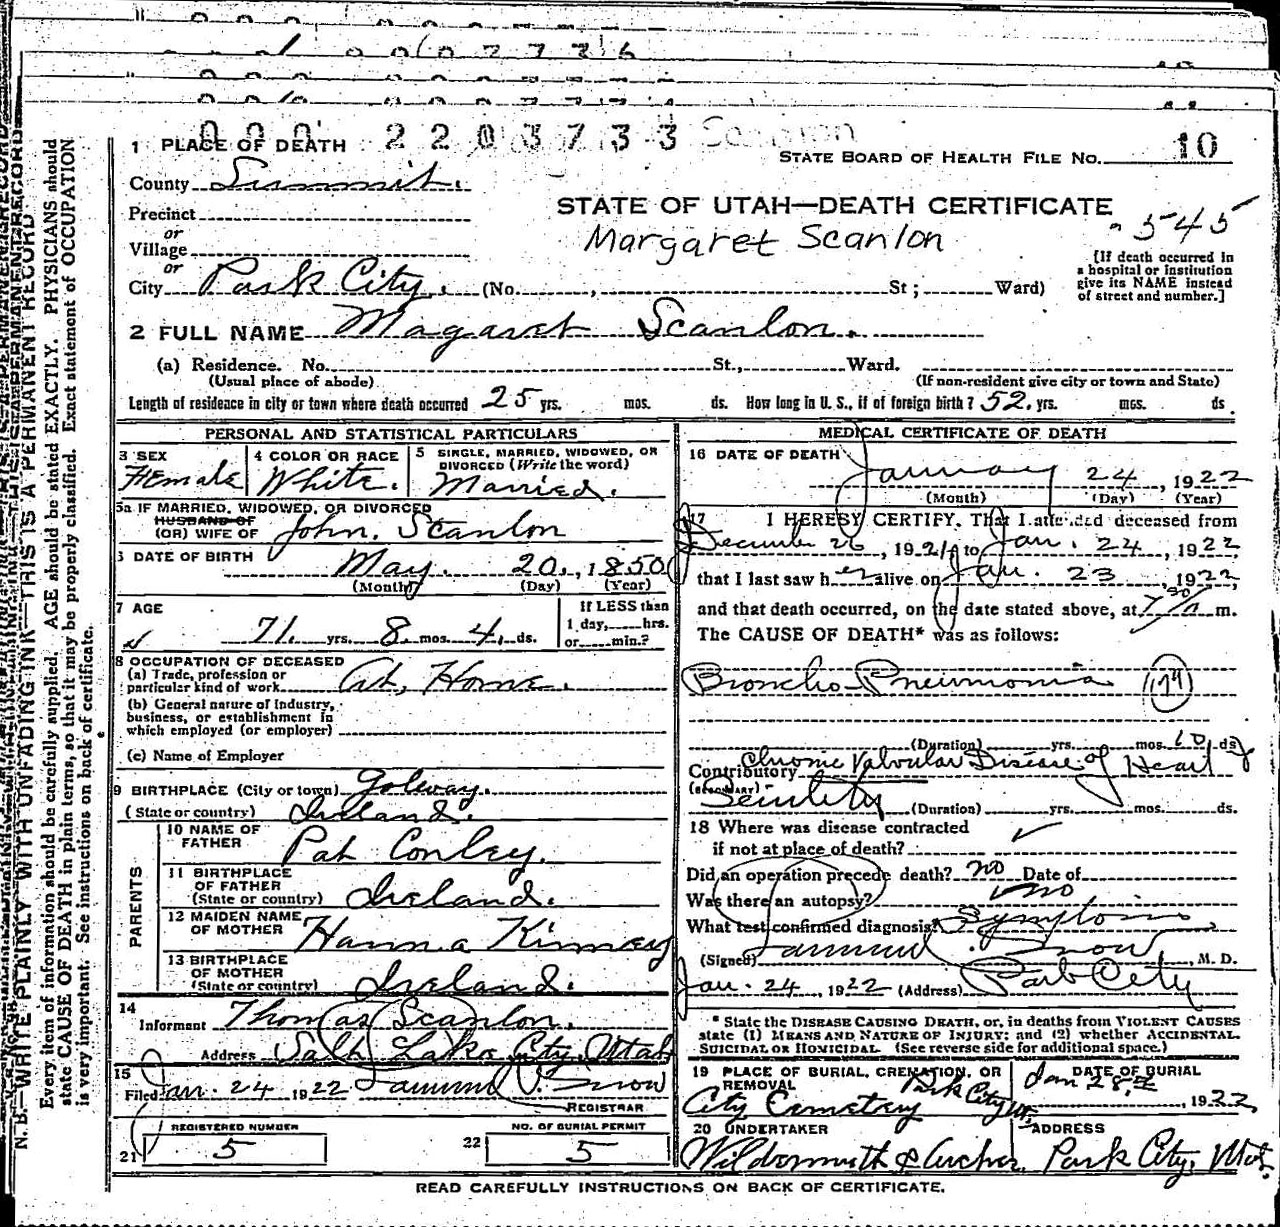 000 2203733 Scanlon
1 PLACE OF DEATH
STATE BOARD OF HEALTH FILE NO. 10
County Summit.
STATE OF UTAH—DEATH CERTIFICATE
545
Margaret Scanlon
Precinct
or
Village
or
City Park City. (No. , St; Ward)
[If death occurred in
a hospital or institution
give its NAME instead
of street and number.]
2 FULL NAME Magaret Scanlon.
(a) Residence. No. St., Ward.
(Usual place of abode) (If non-resident give city or town and State)
Length of residence in city or town where death occurred 25 yrs. mos. ds. How long in U. S., if of foreign birth? 52. yrs. mos. ds.
PERSONAL AND STATISTICAL PARTICULARS
3 SEX
Female
4 COLOR OR RACE
White.
5 SINGLE, MARRIED, WIDOWED, OR
DIVORCED (Write the word)
Married.
5a IF MARRIED, WIDOWED, OR DIVORCED
HUSBAND OF
(OR) WIFE OF John. Scanlon
6 DATE OF BIRTH May. 20., 1850
(Month) (Day) (Year)
7 AGE
71. yrs. 8. mos. 4. ds.
If LESS than
1 day, hrs.
or min.?
8 OCCUPATION OF DECEASED
(a) Trade, profession or
particular kind of work At, Home.
(b) General nature of Industry,
business, or establishment in
which employed (or employer)
(c) Name of Employer
9 BIRTHPLACE (City or town) Golway.
(State or country) Ireland.
PARENTS
10 NAME OF
FATHER Pat Conley.
11 BIRTHPLACE
OF FATHER
(State or country) Ireland.
12 MAIDEN NAME
OF MOTHER Hanna Kinney
13 BIRTHPLACE
OF MOTHER
(State or country) Ireland.
14
Informant Thomas Scanlon.
Address Salt Lake City, Utah
15
Filed Jan. 24 1922 Snow
REGISTRAR
REGISTERED NUMBER
21 5
NO. OF BURIAL PERMIT
22 5
MEDICAL CERTIFICATE OF DEATH
16 DATE OF DEATH
January 24, 1922
(Month) (Day) (Year)
17 I HEREBY CERTIFY, That I attended deceased from
December 26, 1921, to Jan. 24, 1922
that I last saw her alive on Jan. 23, 1922,
and that death occurred, on the date stated above, at 7 30/A m.
The CAUSE OF DEATH* was as follows:
Broncho-Pneumonia
(Duration) yrs. mos. 10 ds
Contributory Chronic Valvular Disease of Heart
(SECONDARY)
Senility (Duration) yrs. mos. ds.
18 Where was disease contracted
if not at place of death?
Did an operation precede death? no Date of
Was there an autopsy? no
What test confirmed diagnosis? Symptoms
(Signed) Snow, M. D.
Jan. 24, 1922 (Address) Park City
* State the DISEASE CAUSING DEATH, or, in deaths from VIOLENT CAUSES
state (1) MEANS AND NATURE OF INJURY; and (2) whether ACCIDENTAL,
SUICIDAL OR HOMICIDAL. (See reverse side for additional space.)
19 PLACE OF BURIAL, CREMATION, OR
REMOVAL Park City Ut.
City Cemetery
DATE OF BURIAL
Jan 28th, 1922
20 UNDERTAKER
Wildermuth & Archer.
ADDRESS
Park City, Utah.
READ CAREFULLY INSTRUCTIONS ON BACK OF CERTIFICATE.
N. B.—WRITE PLAINLY WITH UNFADING INK—THIS IS A PERMANENT RECORD
Every item of information should be carefully supplied. AGE should be stated EXACTLY. PHYSICIANS should
state CAUSE OF DEATH in plain terms, so that it may be properly classified. Exact statement of OCCUPATION
is very important. See instructions on back of certificate.